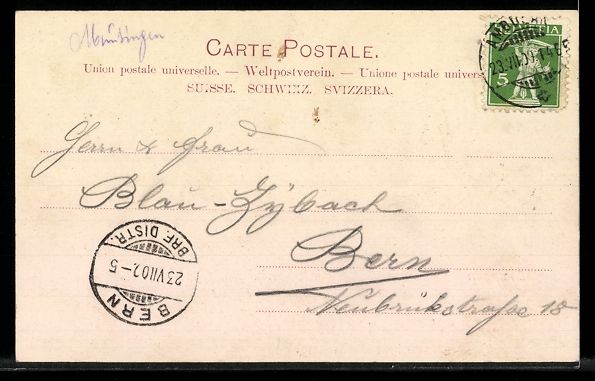 CARTE POSTALE.
Union postale universelle. — Weltpostverein. — Unione postale univers
SUISSE. SCHWEIZ. SVIZZERA.
HELVETIA
5
Herrn & Frau
Blau-Zybach
Bern
Neubrükstrasse 18
BERN
23 VII 09.–5
BRF. DISTR.